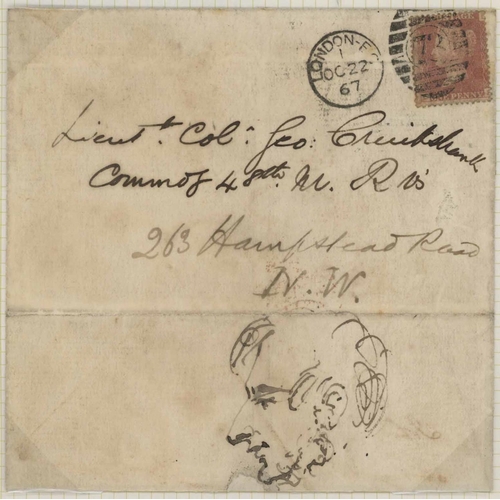 LONDON-F.
1
OC 22
67
PENNY
Lieut^t. Col^: Geo: Cruikshank
Comm^g 48th. M. R Vs
263 Hampstead Road
N. W.